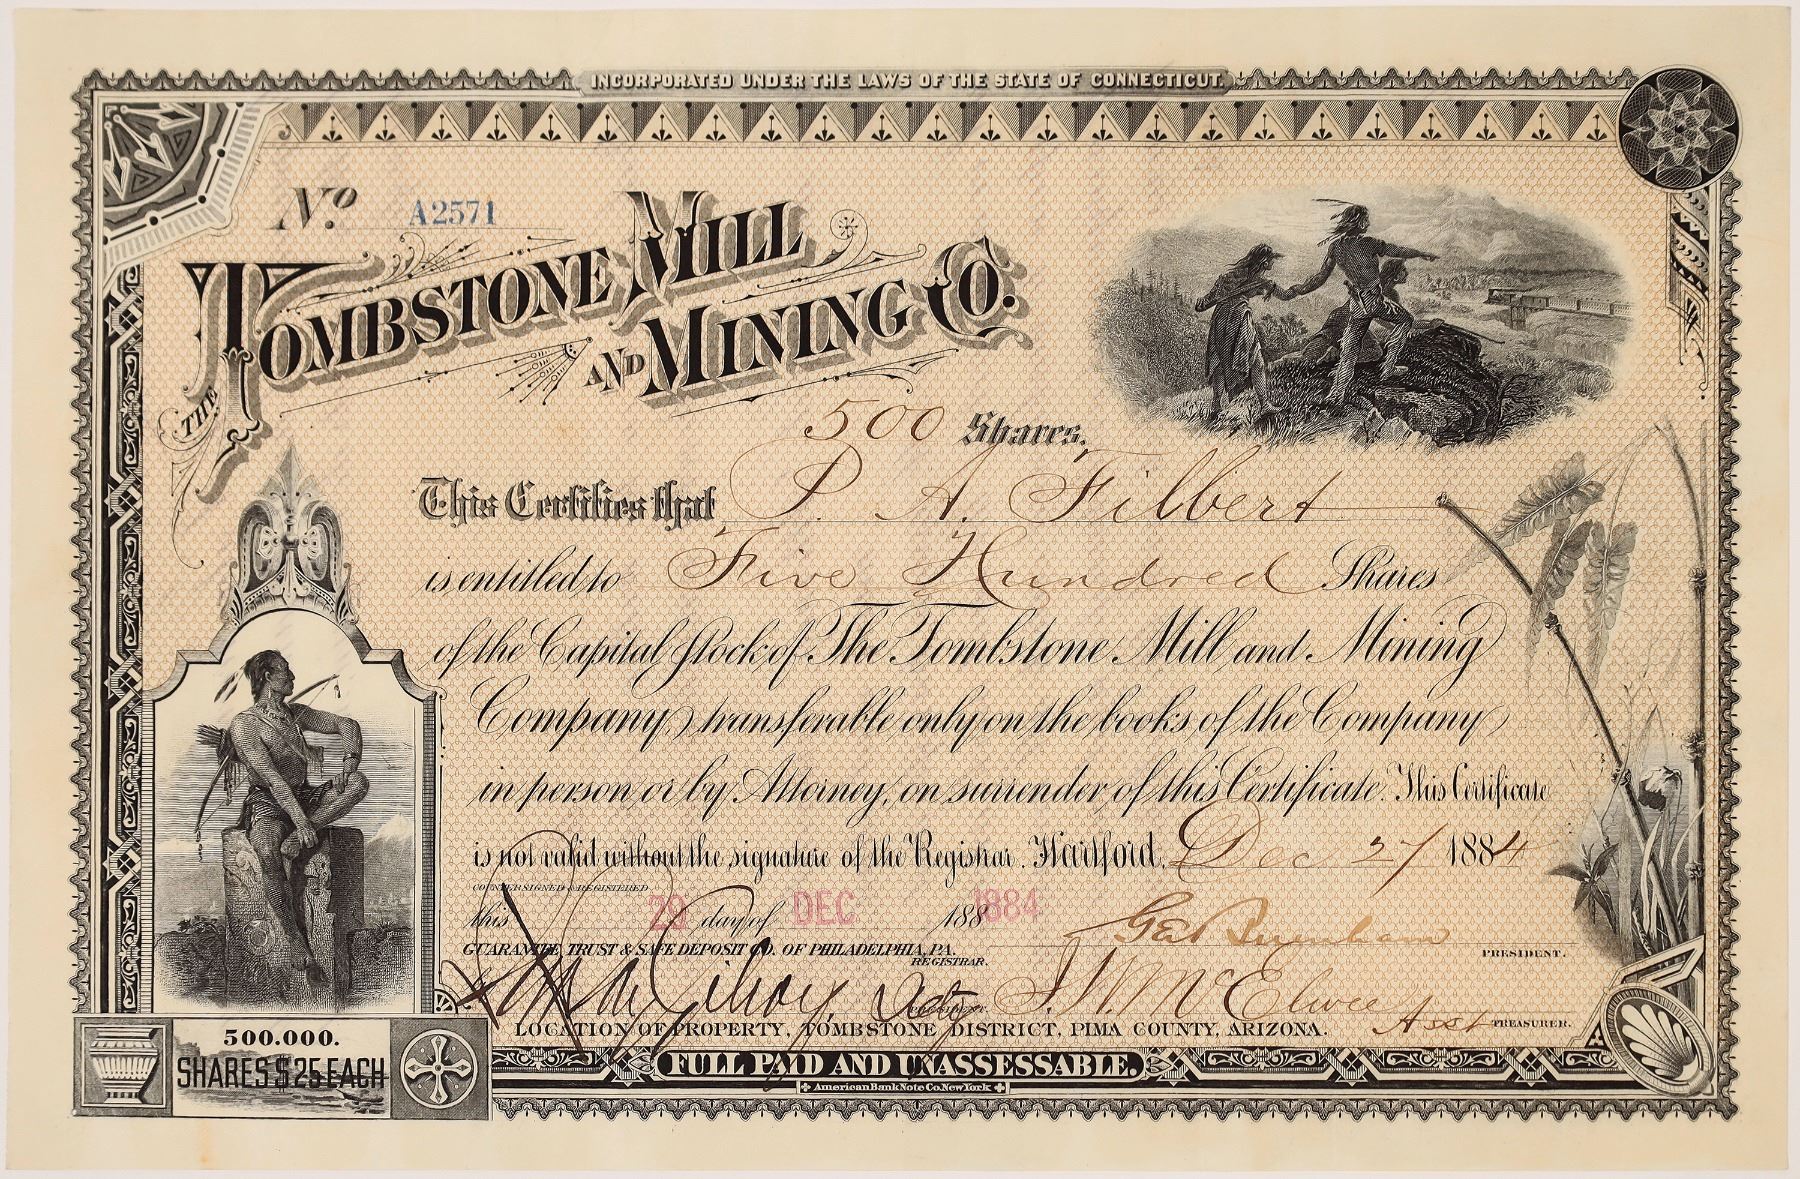 INCORPORATED UNDER THE LAWS OF THE STATE OF CONNECTICUT.
No. A2571
THE TOMBSTONE MILL
AND MINING CO.
500 Shares.
This Certifies that P. A. Filbert
is entitled to Five Hundred Shares
of the Capital Stock of The Tombstone Mill and Mining
Company, transferable only on the books of the Company
in person or by Attorney, on surrender of this Certificate. This Certificate
is not valid without the signature of the Registrar. Hartford, Dec 27 1884
COUNTERSIGNED & REGISTERED
this 29 day of DEC 188 1884
GUARANTEE TRUST & SAFE DEPOSIT CO. OF PHILADELPHIA, PA.
REGISTRAR.
PRESIDENT.
McElwee
Asst TREASURER.
LOCATION OF PROPERTY, TOMBSTONE DISTRICT, PIMA COUNTY, ARIZONA.
500.000.
SHARES $25 EACH
FULL PAID AND UNASSESSABLE.
American Bank Note Co. New York